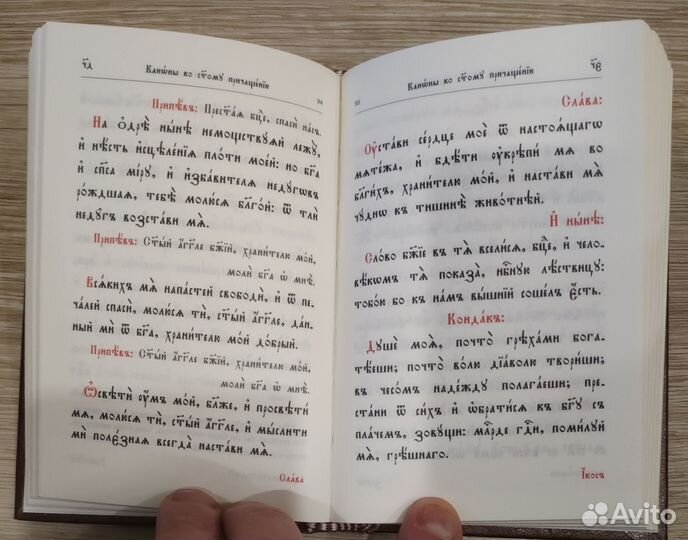 чд Канѡ́ны ко ст҃о́му причаще́нїи 94
Припѣ́въ: Прест҃а́ѧ бц҃е, спасѝ на́съ.
На ѻ҆дрѣ̀ ны́нѣ немощству́ѧй лежꙋ̀,
и҆ нѣ́сть и҆сцѣле́нїѧ пло́ти мое́й: но бг҃а
и҆ сп҃са мі́рꙋ, и҆ и҆зба́вителѧ недꙋ́гѡвъ
ро́ждшаѧ, тебѣ̀ молю́сѧ бл҃го́й: ѿ тлѝ
недꙋ́гъ возста́ви мѧ̀.
Припѣ́въ: Ст҃ы́й а҆́гг҃ле бж҃їй, храни́телю мо́й,
молѝ бг҃а ѡ҆ мнѣ̀.
Всѧ́кихъ мѧ̀ напа́стей свободѝ, и҆ ѿ пе-
ча́лей спасѝ, молю́сѧ тѝ, ст҃ы́й а҆́гг҃ле, да́н-
ный мѝ ѿ бг҃а, храни́телю мо́й до́брый.
Припѣ́въ: Ст҃ы́й а҆́гг҃ле бж҃їй, храни́телю мо́й,
молѝ бг҃а ѡ҆ мнѣ̀.
Ѡ҆свѣтѝ ᲂу҆́мъ мо́й, бл҃же, и҆ просвѣтѝ
мѧ̀, молю́сѧ тѝ, ст҃ы́й а҆́гг҃ле, и҆ мы́слити
мѝ поле́знаѧ всегда̀ наста́ви мѧ̀.
Сла́ва
95 Канѡ́ны ко ст҃о́му причаще́нїи чє
Сла́ва:
Оу҆ста́ви се́рдце моѐ ѿ настоѧ́щагѡ
мѧте́жа, и҆ бдѣ́ти ᲂу҆крѣпи́ мѧ во
бл҃ги́хъ, храни́телю мо́й, и҆ наста́ви мѧ̀
чꙋ́днѡ къ тишинѣ̀ живо́тнѣй.
И҆ ны́нѣ:
Сло́во бж҃їе въ тѧ̀ всели́сѧ, бц҃е, и҆ чело-
вѣ́кѡмъ тѧ̀ показа̀, нб҃ную лѣ́ствицꙋ:
тобо́ю бо къ на́мъ вы́шнїй соше́лъ є҆́сть.
Конда́къ:
Дꙋшѐ моѧ̀, почто̀ грѣха́ми бога-
тѣ́еши; почто̀ во́лю дїа́волю твори́ши;
въ чесо́мъ наде́ждꙋ полага́еши; пре-
ста́ни ѿ си́хъ и҆ ѡ҆брати́сѧ къ бг҃ꙋ съ
пла́чемъ, зовꙋ́щи: млⷭ҇рде гдⷭ҇и, поми́лꙋй
мѧ̀, грѣ́шнаго.
І҆́косъ
Avito